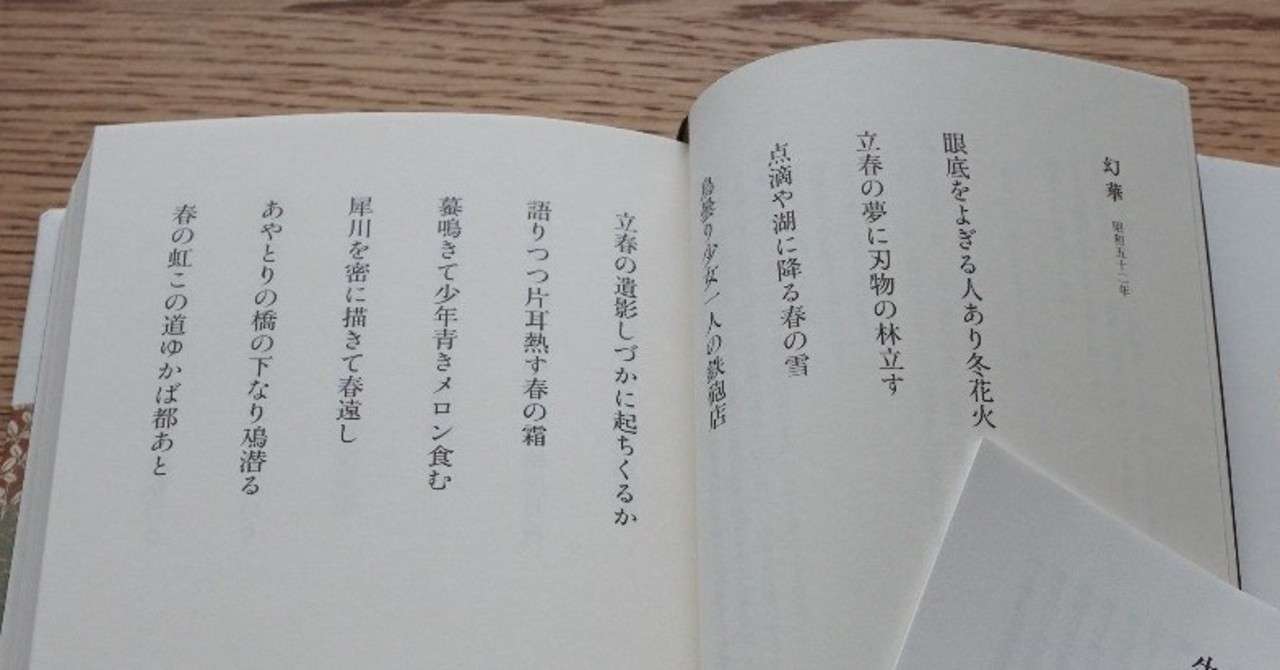 幻華 昭和五十二年
眼底をよぎる人あり冬花火
立春の夢に刃物の林立す
点滴や湖に降る春の雪
鳥曇り少女一人の鉄砲店
立春の遺影しづかに起ちくるか
語りつつ片耳熱す春の霜
蟇鳴きて少年青きメロン食む
犀川を密に描きて春遠し
あやとりの橋の下なり鳰潜る
春の虹この道ゆかば都あと